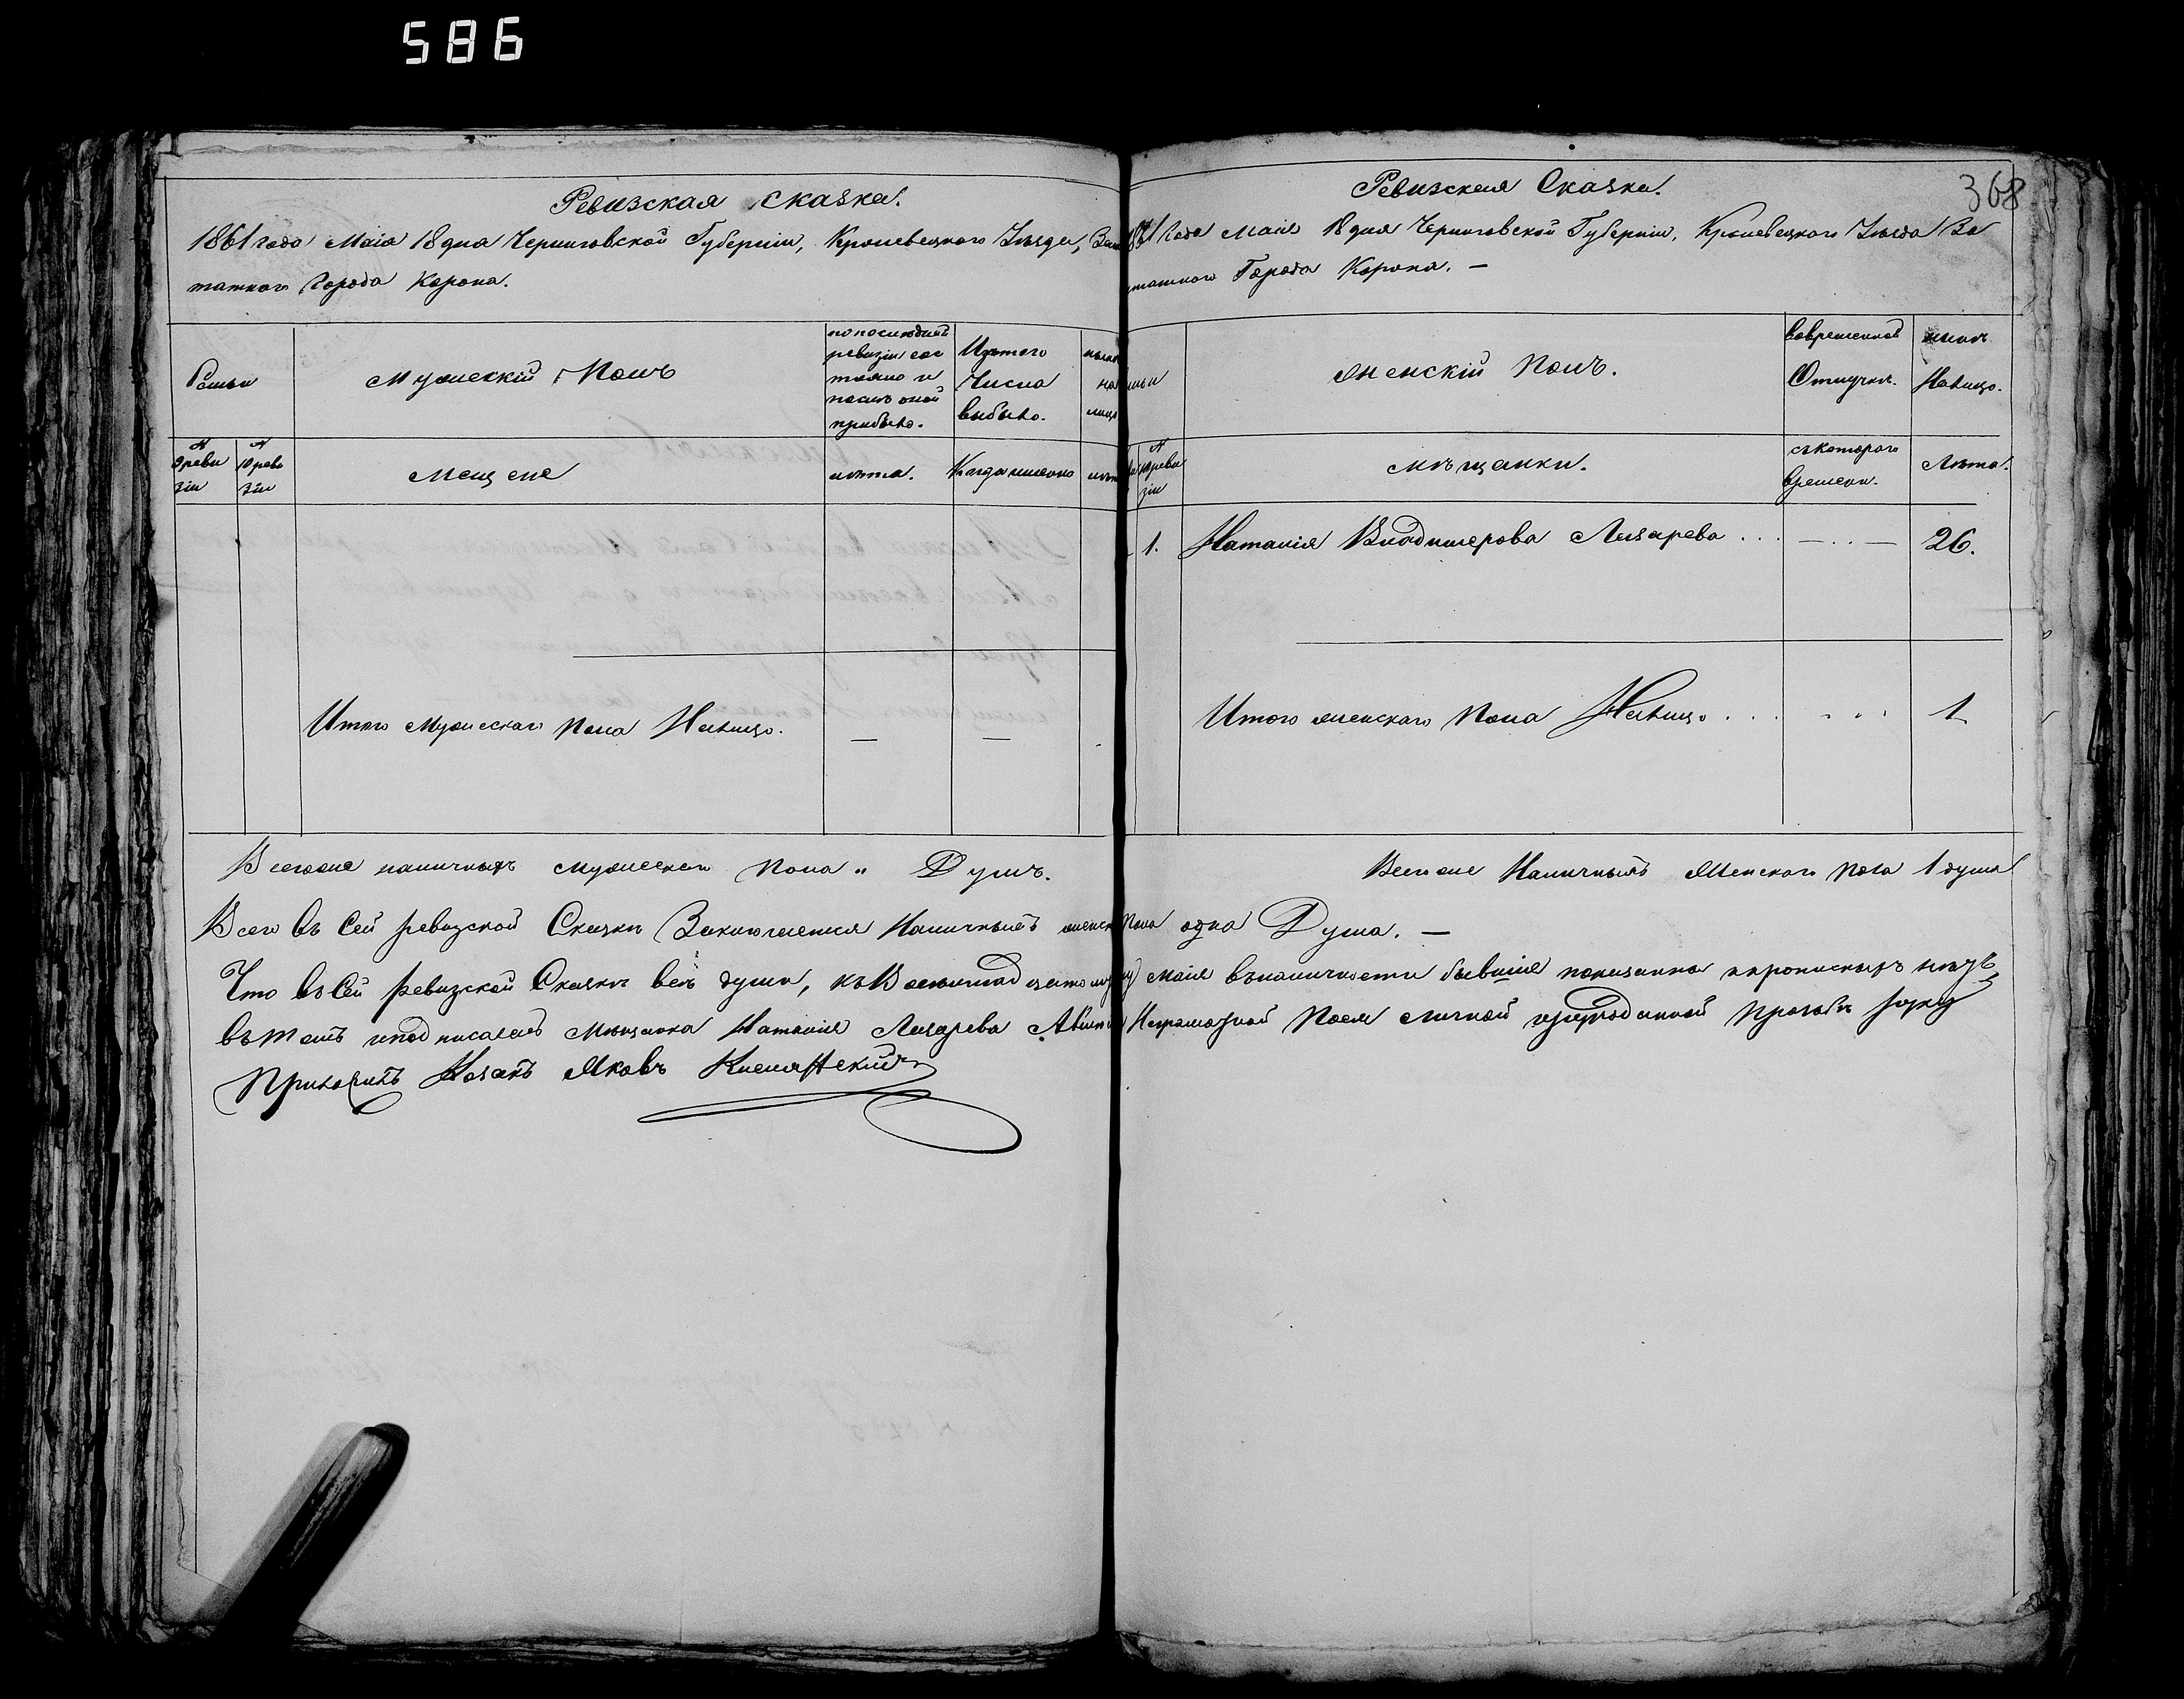 586
Ревизская сказка.
1861 года Маія 18 дня Черниговской Губерніи, Кролевецкого Уѣзда, Заш
татного Города Коропа.
Семьи
Мужескій Полъ
по последней ревизіи сос тояло и послѣ оной прибыло.
Изътого Числа выбыло.
ныне на лицо
№ 9 реви зіи
№ 10 реви зіи
Мещене
лѣта.
Когда именно
лѣт
Итого Мужескаго Пола Налицо. — —
Всегоже наличныхъ мужескаго Пола „ Душъ.
368
Ревизская Сказка.
1861 Года Маія 18 дня Черниговской Губерніи, Кролевецкого Уѣзда За
штатного Города Коропа. —
мьи
Женскій Полъ.
вовременной Отлучки.
ныне Налицо.
№ 10 реви зіи
мѣщанки.
съкоторого времени.
Лѣта.
1. Наталія Владимерова Лазарева . . . — . . — 26.
Итого женскаго Пола Налицо . . . . . . 1
Всего же Наличныхъ Женскаго пола 1 душа
Всего въ Сей ревизской Сказки Заключается Наличныхъ женск Пола одна Душа. —
Что въ Сей ревизской Сказки всѣ души, къ Восемнадцатому Маія вналичности бывшіе показанны и прописныхъ нѣтъ
въ томъ и подписалась Мѣщанка Наталія Лазарева А вместо Неграмотной Поея личной прозьбѣ руку
Приложилъ Козакъ Яковъ